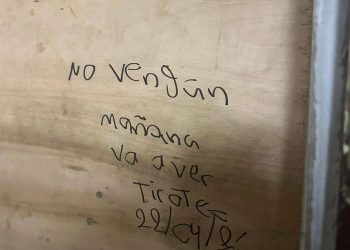 No vengún
mañana
va aver
tirote
22/04/2